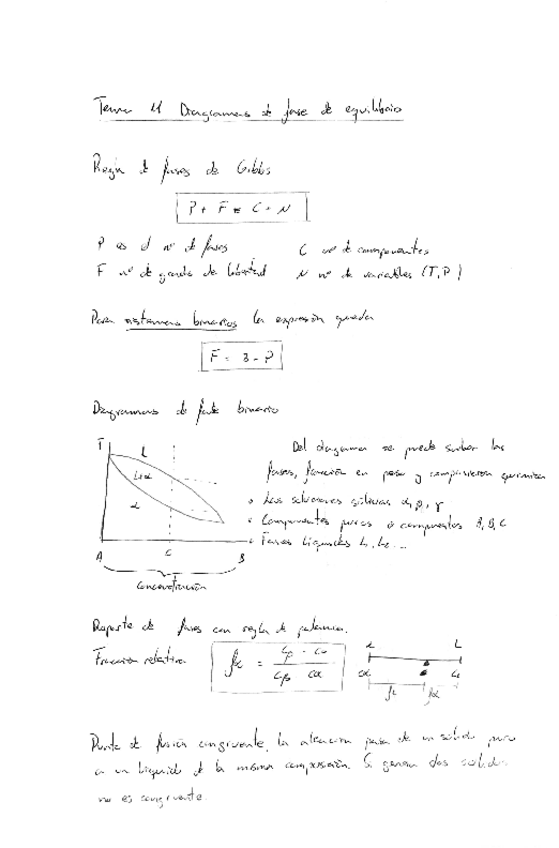 Tema 11 Diagramas de fase de equilibrio
Regla de fases de Gibbs
P + F = C + N
P es el nº de fases
C nº de componentes
F nº de grados de libertad
N nº de variables (T, P)
Para sistemas binarios la expresión queda
F = 3 - P
Diagramas de fase binario
T
L
L+α
α
A
C
B
Concentración
Del diagrama se puede saber las
fases, fracción en peso y composición química
Las soluciones sólidas α, β, γ
Componentes puros o compuestos A, B, C
Fases líquidas L1, L2 ...
Reparte de fases con regla de palanca.
Fracción relativa
fα = Cβ - C0 / Cβ - Cα
α
L
Cα
CL
fL
fα
Punto de fusión congruente, la aleación pasa de un sólido puro
a un líquido de la misma composición. Si genera dos sólidos
no es congruente.